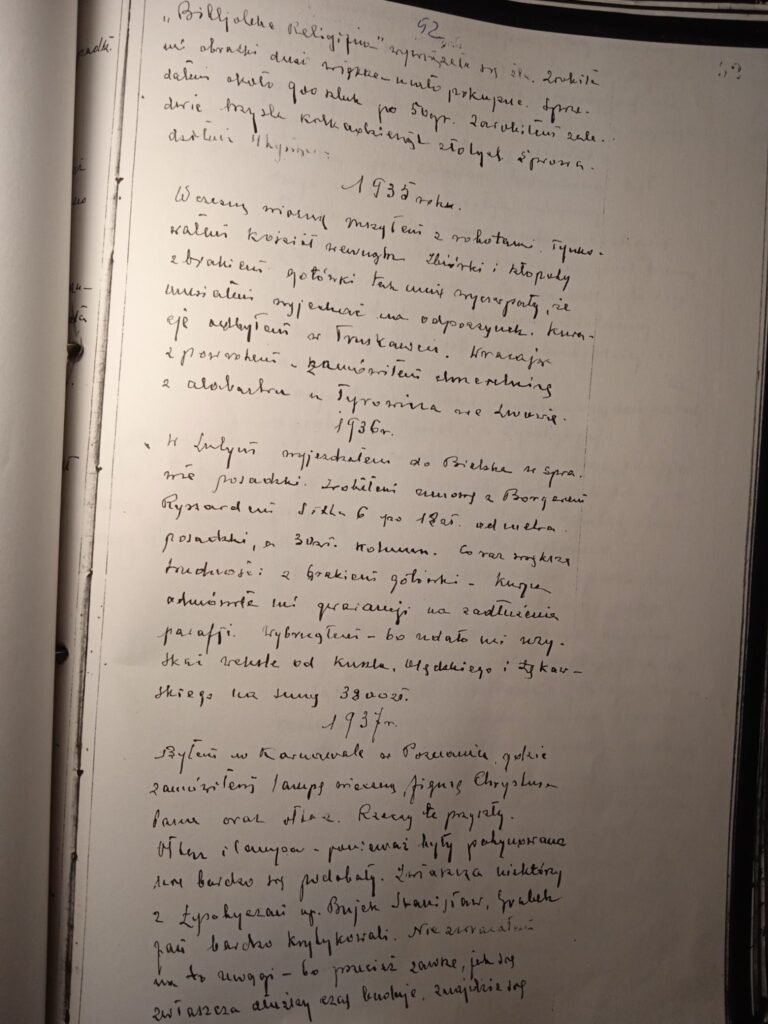 92
"Bibljoteka Religijna" wywiązała się źle. Zrobiła
mi obrazki duże więzkie - mało pokupne. Sprze-
dałem około 900 sztuk po 50 gr. Zarobiłem zale-
dwie trzysta kilkadziesiąt złotych. Sprowa-
dziłem 4
1935 roku.
Wczesną wiosną ruszyłem z robotami. Tynko-
wałem kościół wewnątrz. Zbiórki i kłopoty
z brakiem gotówki tak mnie wyczerpały, że
musiałem wyjechać na odpoczynek. Kura-
cję odbyłem w Truskawcu. Wracając
z powrotem - zamówiłem chrzcielnicę
z alabastru u Tyrowicza we Lwowie.
1936 r.
W Lutym wyjeżdżałem do Bielska w spra-
wie posadzki. Zrobiłem umowę z Borgerem
Ryszardem 6 po 12 zł. od metra
posadzki, a 30 zł. kolumn. Coraz większe
trudności z brakiem gotówki - Kurja
odmówiła mi gwarancji na zadłużenie
parafji. Wybrnąłem - bo udało mi uzy-
skać weksle od Kuszla, i Łękaw-
skiego na sumę 3800 zł.
1937 r.
Byłem w Karnawale w Poznaniu, gdzie
zamówiłem lampę wieczną, figurę Chrystusa
Pana oraz ołtarz. Rzeczy te przyszły.
Ołtarz i lampa - ponieważ były
bardzo się podobały. Zwłaszcza niektórzy
z np. Bujek Stanisław, Grabek
bardzo krytykowali. Nie zwracałem
na to uwagi - bo przecież zawsze, jak się
zwłaszcza dłuższy czas buduje, znajdzie się